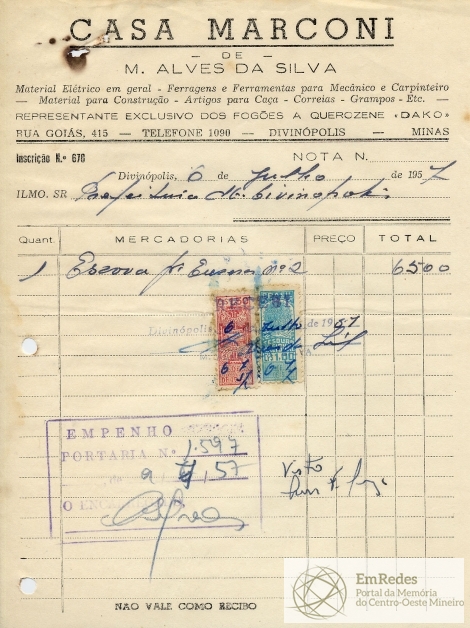 CASA MARCONI
- DE -
M. ALVES DA SILVA
Material Elétrico em geral - Ferragens e Ferramentas para Mecânico e Carpinteiro
- Material para Construção - Artigos para Caça - Correias - Grampos - Etc. -
REPRESENTANTE EXCLUSIVO DOS FOGÕES A QUEROZENE «DAKO»
RUA GOIÁS, 415 — TELEFONE 1090 — DIVINÓPOLIS — MINAS
Inscrição N.º 670
NOTA N.
Divinópolis, 6 de Julho de 1957
ILMO. SR Prefeitura M. Divinopolis
Quant. MERCADORIAS PREÇO TOTAL
1 Escova p/ nº 2 6500
Divinópolis 6 Julho de 1957
EMPENHO
PORTARIA N.º 1.597
57
Visto
NAO VALE COMO RECIBO
EmRedes
Portal da Memória
do Centro-Oeste Mineiro